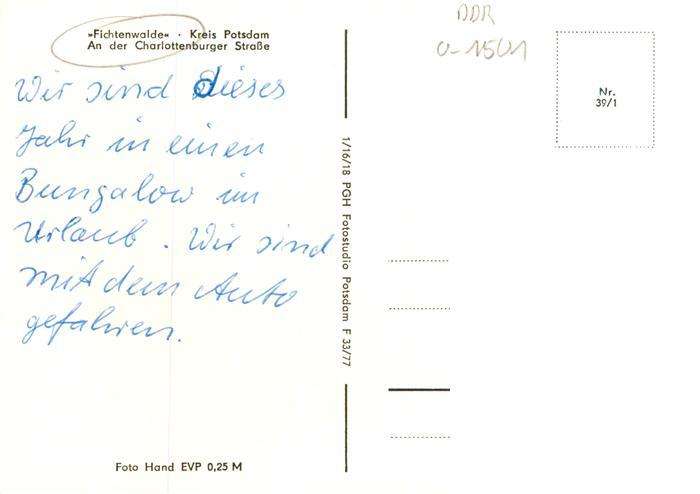 »Fichtenwalde« · Kreis Potsdam
An der Charlottenburger Straße
Wir sind dieses
Jahr in einen
Bungalow im
Urlaub. Wir sind
mit dem Auto
gefahren.
Foto Hand EVP 0,25 M
1/16/18 PGH Fotostudio Potsdam F 33/77
DDR
O-1501
Nr.
39/1